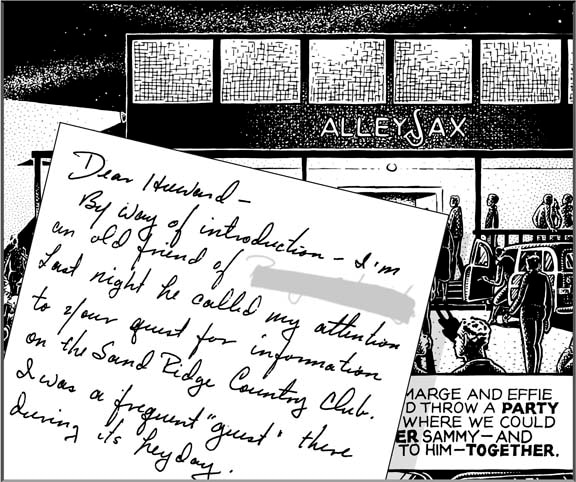 ALLEYSAX
Dear Howard-
By way of introduction - I'm
an old friend of
Last night he called my attention
to your quest for information
on the Sand Ridge Country Club.
I was a frequent "guest" there
during its heyday.
MARGE AND EFFIE
D THROW A PARTY
WHERE WE COULD
ER SAMMY—AND
TO HIM—TOGETHER.